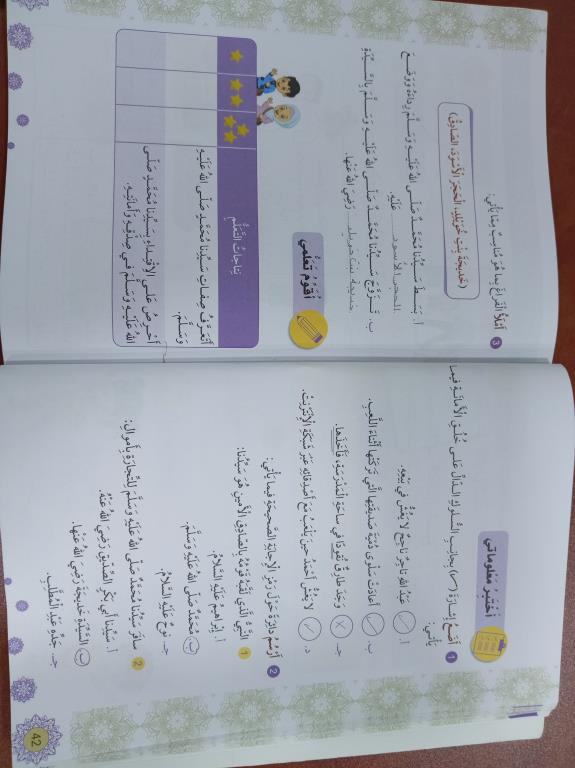 أَخْتَبِرُ مَعْلوماتي
1 أَضَعُ إِشارَةَ (✓) بِجانِبِ السُّلوكِ الدّالِّ عَلى خُلُقِ الْأَمانَةِ فيما
يَأْتي:
أ. (✓) عَبْدُ اللهِ تاجِرٌ ناجِحٌ لا يَغُشُّ في بَيْعِهِ.
ب. (✓) أَعادَتْ سَلْوى دُمْيَةَ صَديقَتِها الَّتي تَرَكَتْها أَثْناءَ اللَّعِبِ.
جـ. (✗) وَجَدَ طارِقٌ نُقودًا في ساحَةِ الْمَدْرَسَةِ، فَأَخَذَها.
د. (✓) لا يَغُشُّ أَحْمَدُ حينَ يَلْعَبُ مَعَ أَصْدِقائِهِ عَبْرَ شَبَكَةِ الْإِنْتَرْنِتْ.
2 أَرْسُمُ دائِرَةً حَوْلَ رَمْزِ الْإِجابَةِ الصَّحيحَةِ فيما يَأْتي:
1 النَّبِيُّ الَّذي لَقَّبَهُ قَوْمُهُ بِالصّادِقِ الْأَمينِ هُوَ سَيِّدُنا:
أ. إِبْراهيمُ عَلَيْهِ السَّلامُ.
ب. مُحَمَّدٌ صَلَّى اللهُ عَلَيْهِ وَسَلَّمَ.
جـ. نوحٌ عَلَيْهِ السَّلامُ.
2 سافَرَ سَيِّدُنا مُحَمَّدٌ صَلَّى اللهُ عَلَيْهِ وَسَلَّمَ لِلتِّجارَةِ بِأَمْوالِ:
أ. سَيِّدِنا أَبي بَكْرٍ الصِّدّيقِ رَضِيَ اللهُ عَنْهُ.
ب. السَّيِّدَةِ خَديجَةَ رَضِيَ اللهُ عَنْها.
جـ. جَدِّهِ عَبْدِ الْمُطَّلِبِ.
42
3 أَمْلَأُ الْفَراغَ بِما هُوَ مُناسِبٌ مِمّا يَأْتي:
(خَديجَةَ بِنْتِ خُوَيْلِدٍ، الْحَجَرَ الْأَسْوَدَ، الصّادِقُ)
أ. بَسَطَ سَيِّدُنا مُحَمَّدٌ صَلَّى اللهُ عَلَيْهِ وَسَلَّمَ رِداءَهُ وَوَضَعَ
الحجر الاسود عَلَيْهِ.
ب. تَزَوَّجَ سَيِّدُنا مُحَمَّدٌ صَلَّى اللهُ عَلَيْهِ وَسَلَّمَ بِالسَّيِّدَةِ
خديجة بنت خويلد رَضِيَ اللهُ عَنْها.
أُقَوِّمُ تَعَلُّمي
نِتاجاتُ التَّعَلُّمِ
أَتَعَرَّفُ صِفاتِ سَيِّدِنا مُحَمَّدٍ صَلَّى اللهُ عَلَيْهِ
وَسَلَّمَ.
أَحْرِصُ عَلى الِاقْتِداءِ بِسَيِّدِنا مُحَمَّدٍ صَلَّى
اللهُ عَلَيْهِ وَسَلَّمَ في صِدْقِهِ وَأَمانَتِهِ.